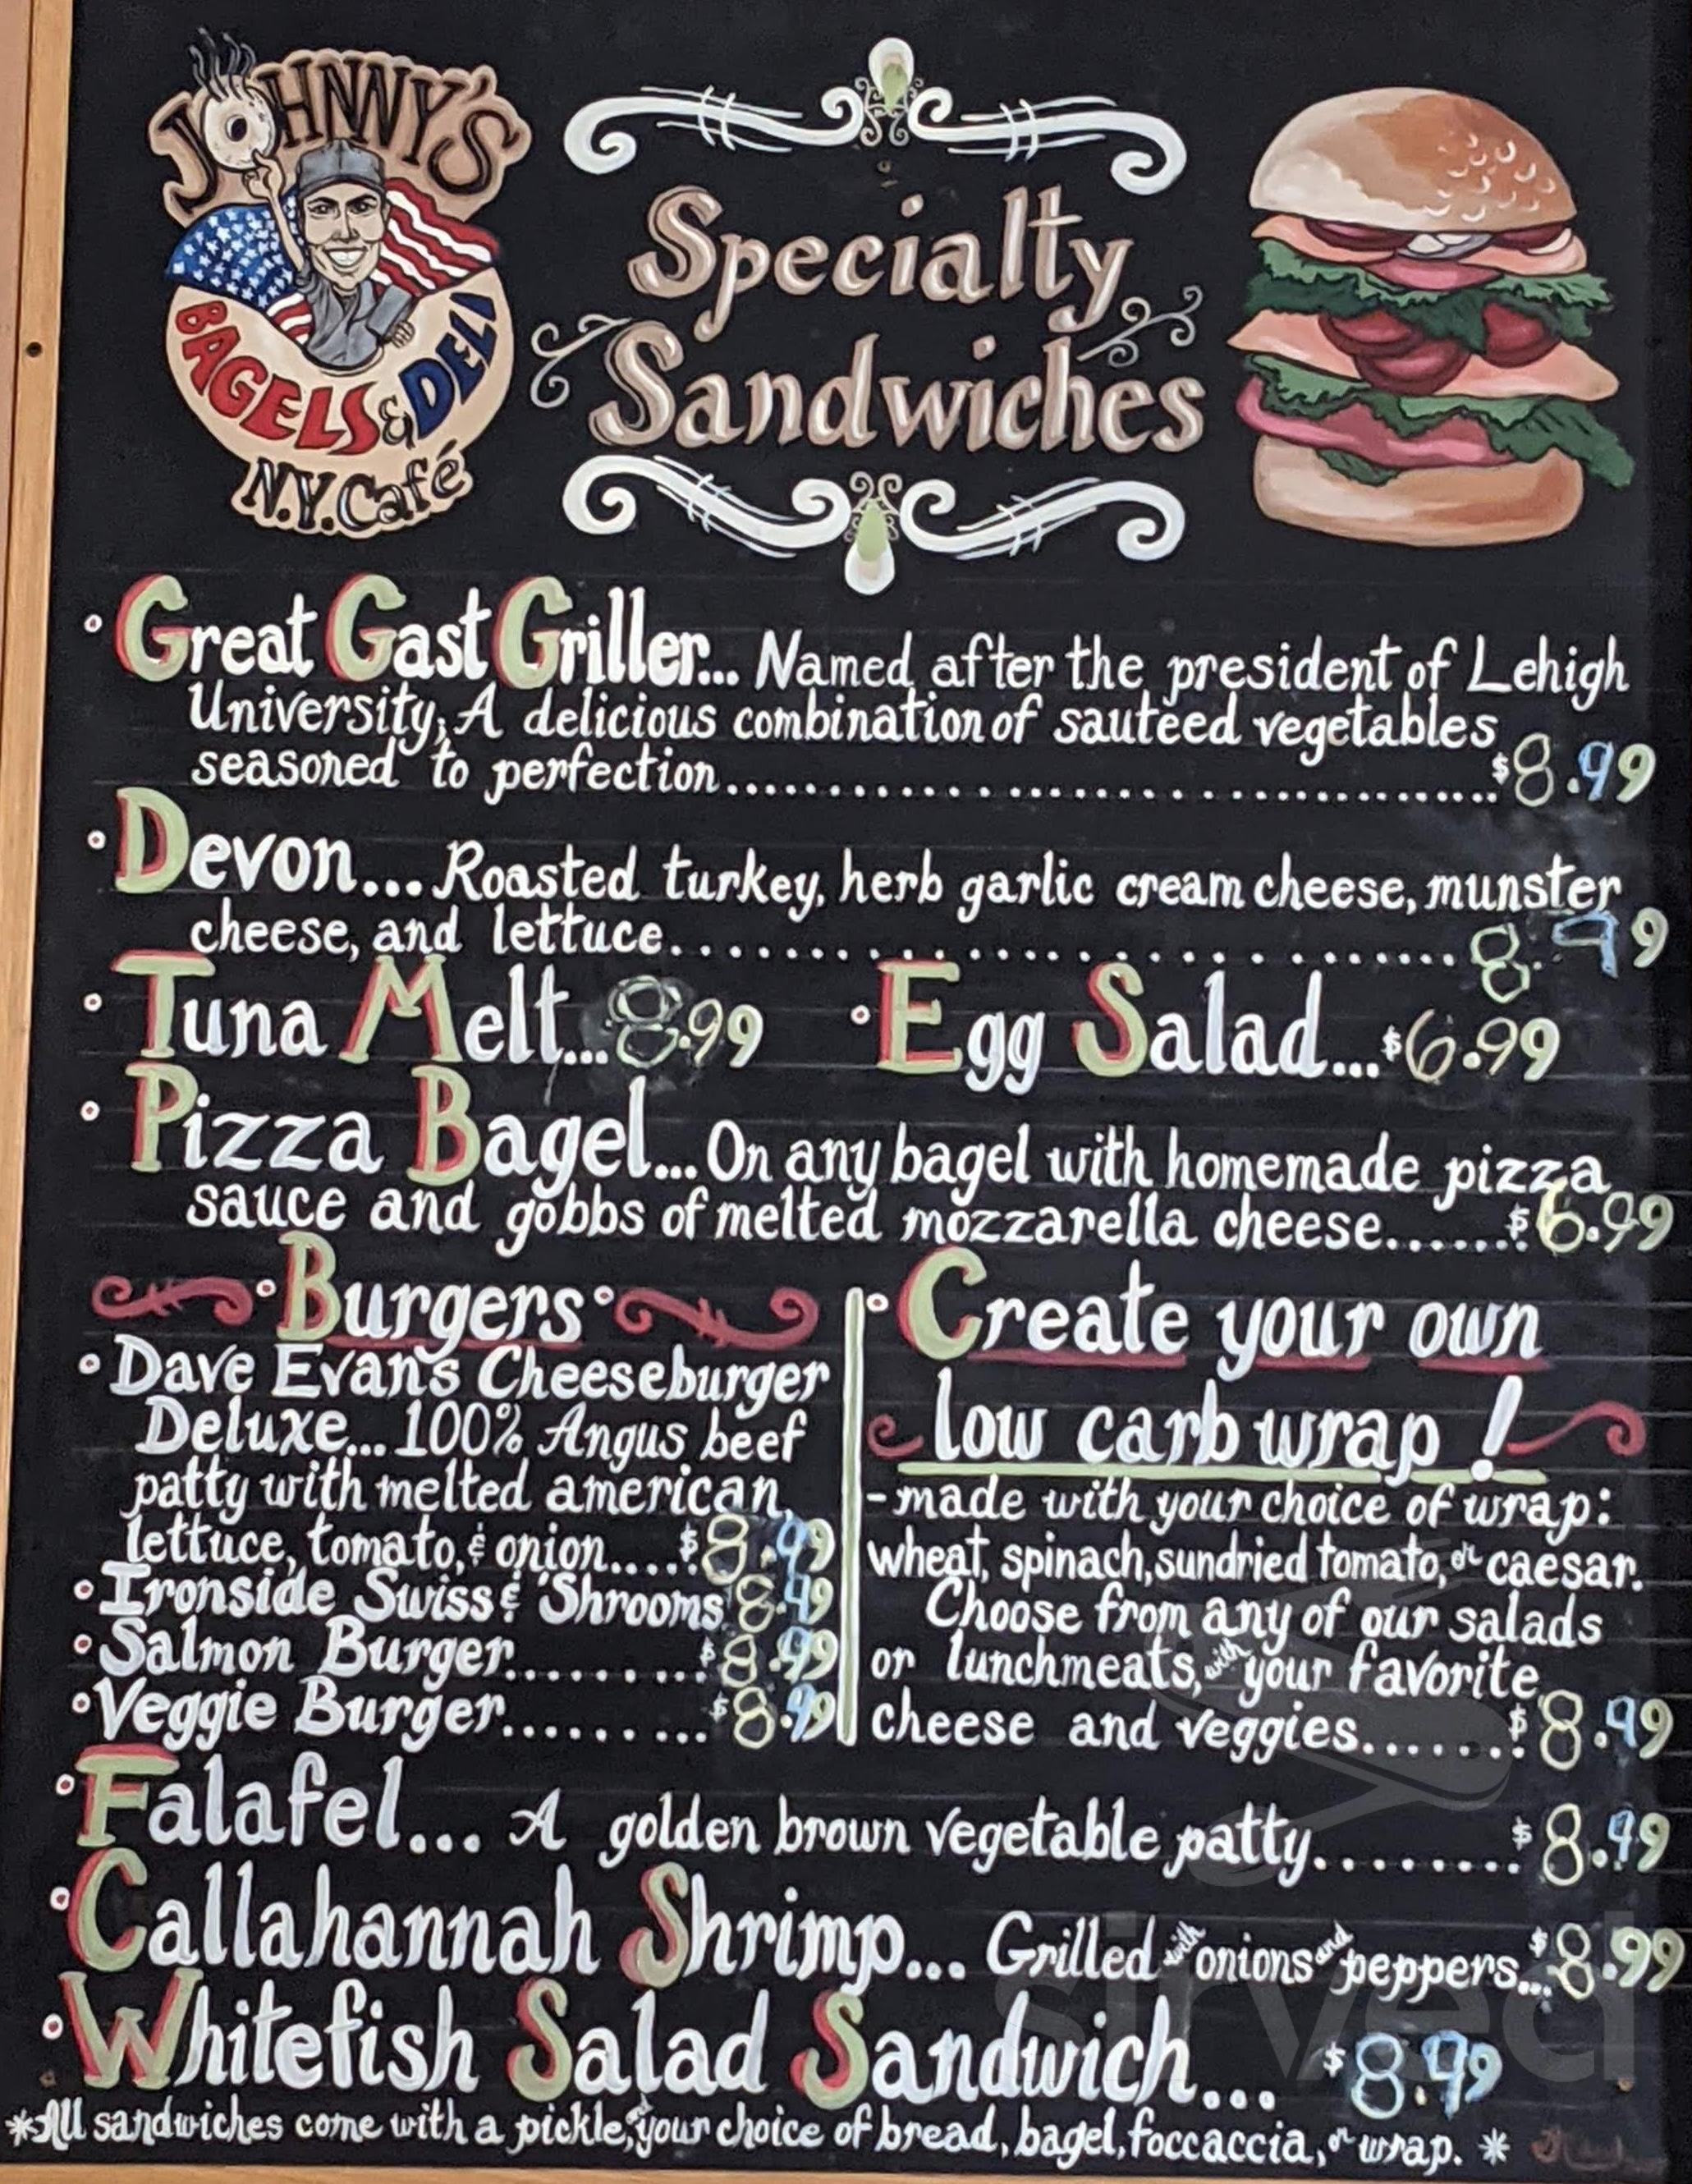 JOHNNY'S
BAGELS & DELI
N.Y. Café
Specialty
Sandwiches
Great Gast Griller... Named after the president of Lehigh
University, A delicious combination of sauteed vegetables
seasoned to perfection.................................$8.99
Devon... Roasted turkey, herb garlic cream cheese, munster
cheese, and lettuce................................8.99
Tuna Melt...8.99 Egg Salad...$6.99
Pizza Bagel... On any bagel with homemade pizza
sauce and gobbs of melted mozzarella cheese......$6.99
Burgers
Dave Evan's Cheeseburger
Deluxe... 100% Angus beef
patty with melted american,
lettuce, tomato, & onion....$8.99
Ironside Swiss & 'Shrooms 8.99
Salmon Burger.........$8.99
Veggie Burger.........$8.99
Create your own
low carb wrap!
-made with your choice of wrap:
wheat, spinach, sundried tomato, or caesar.
Choose from any of our salads
or lunchmeats, with your favorite
cheese and veggies......$8.99
Falafel... A golden brown vegetable patty.........$8.99
Callahannah Shrimp... Grilled with onions and peppers...$8.99
Whitefish Salad Sandwich... $8.99
*All sandwiches come with a pickle, & your choice of bread, bagel, foccaccia, or wrap. *
sirved